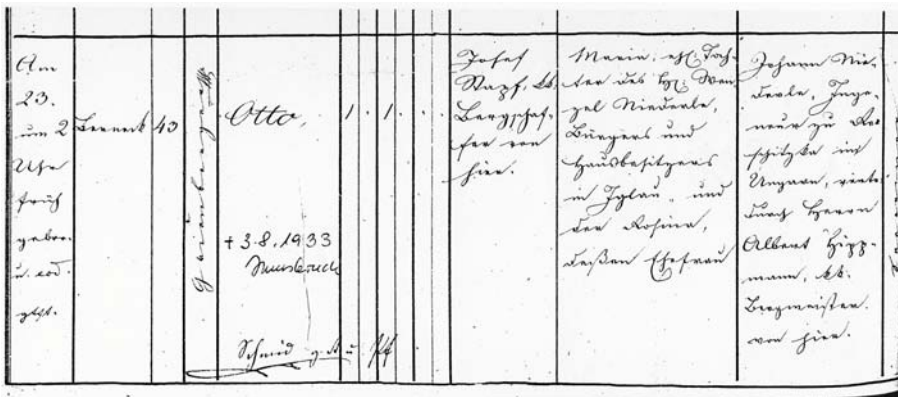 Am
23.
um 2
Uhr
früh
gebor.
u. eod.
gtft.
Berneck
43
Otto,
1. 1.
+ 3.8.1933
Innsbruck
Schmid
Josef
Stapf, kk.
Bergschaf-
fer von
hier.
Maria, ehl. Toch-
ter des H. Wen-
zel Niederle,
Bürgers und
Hausbesitzers
in Iglau, und
der Rosina,
deßen Ehefrau
Johann Nie-
derle, Inge-
neur zu
in
Ungarn,
durch Herrn
Albert Hipp-
mann, kk.
Bergmeister
von hier.